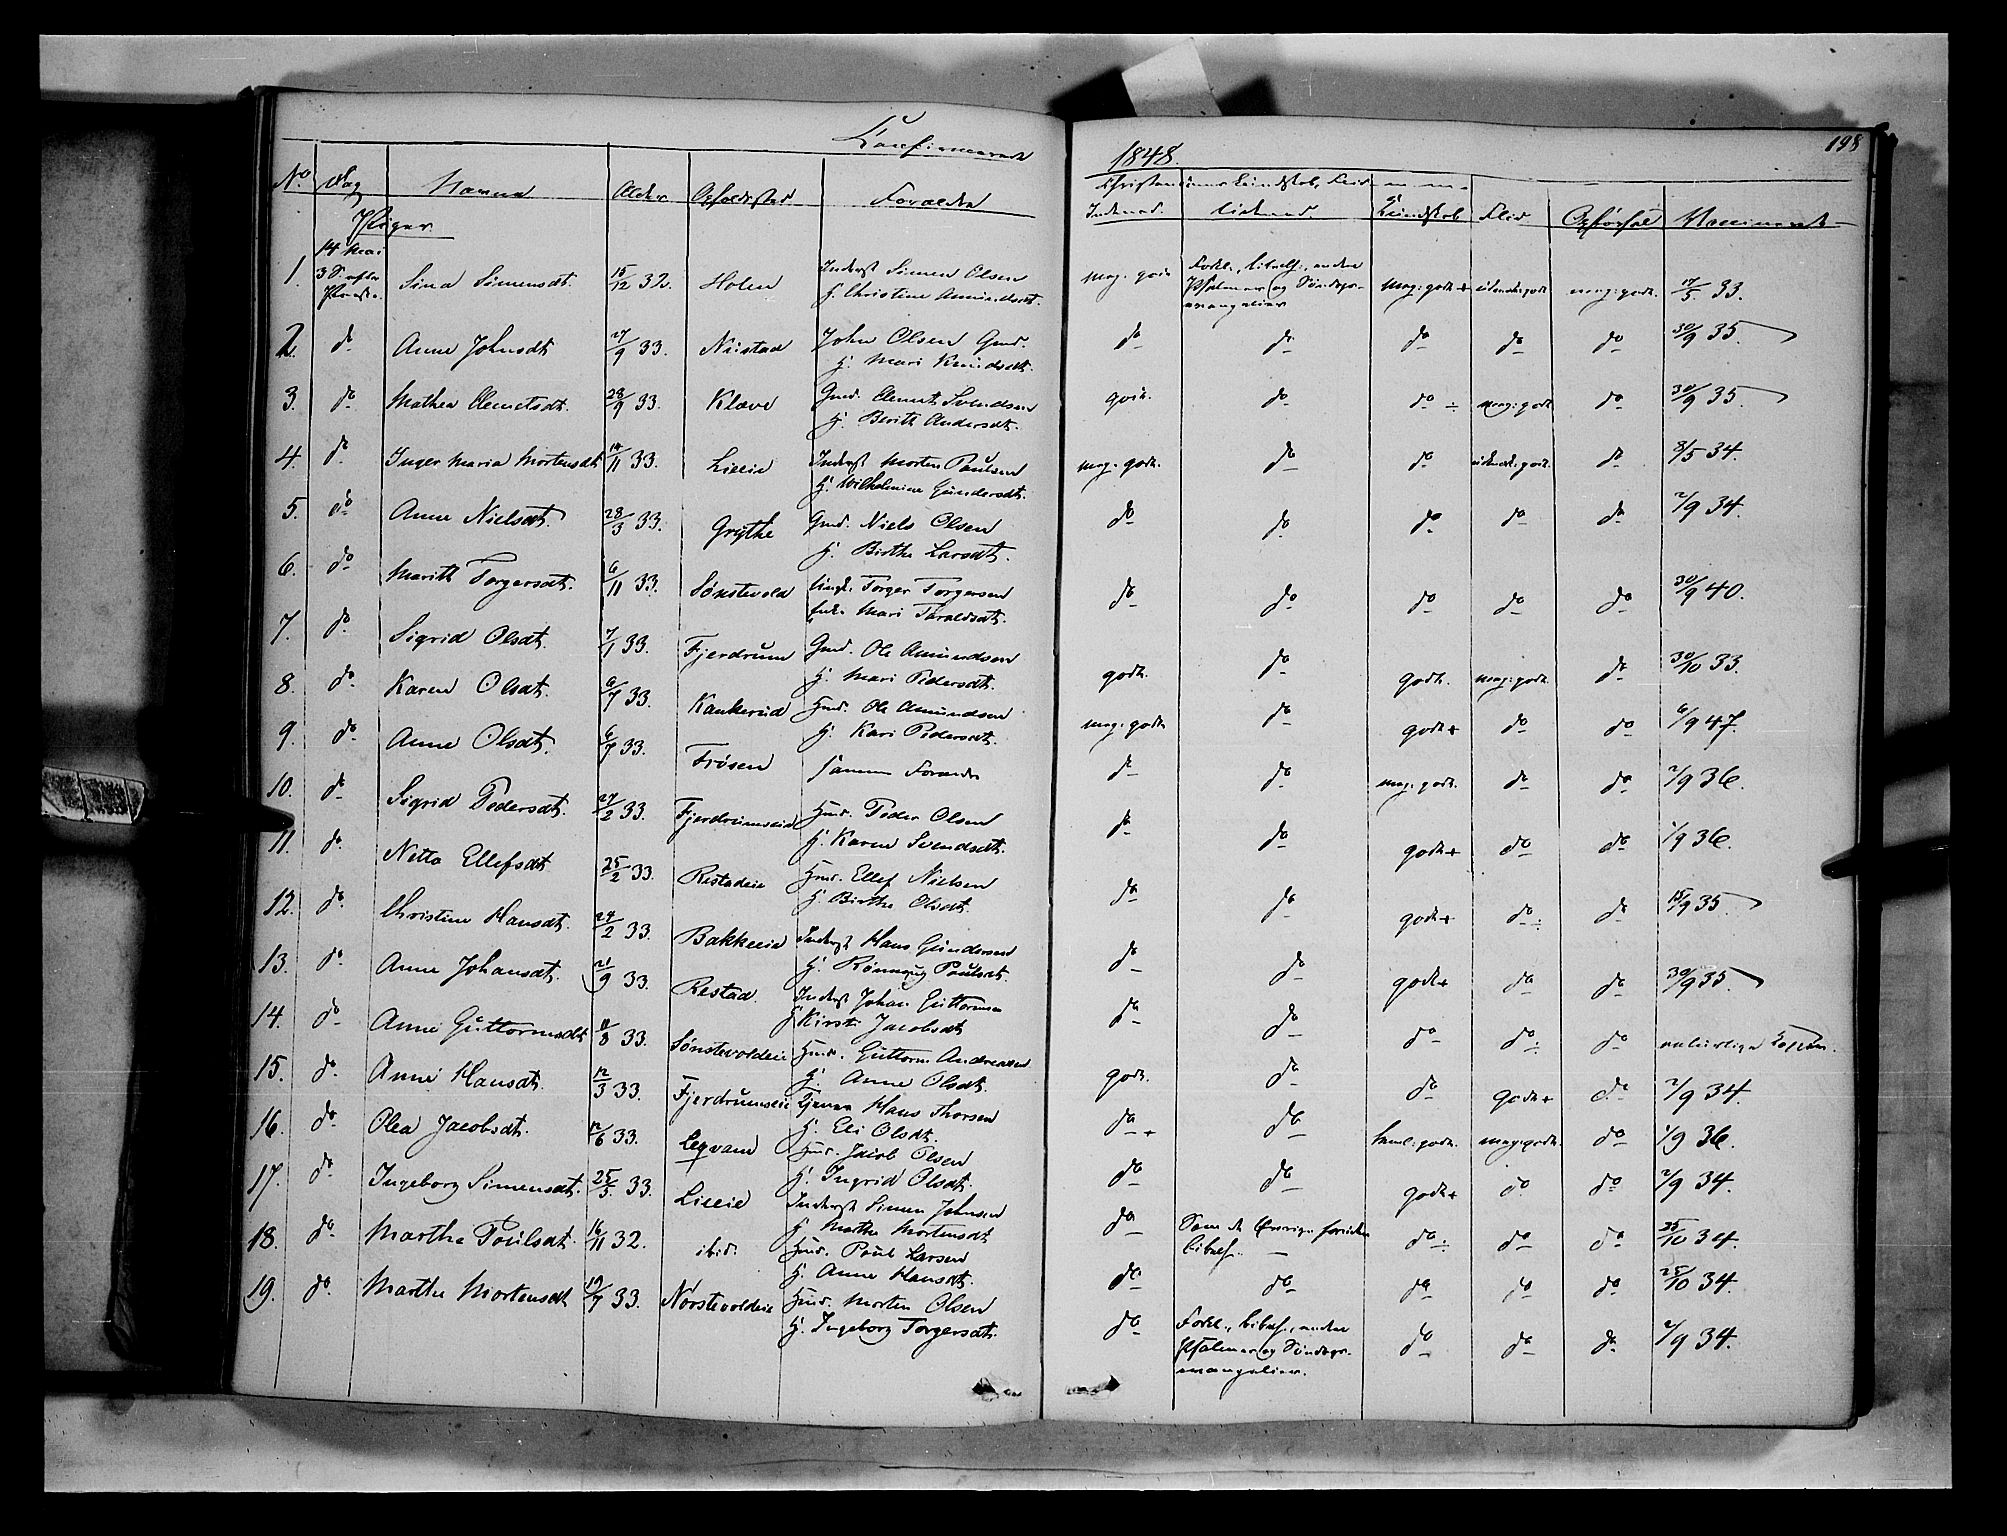 Confirmerede
1848.
198
No Dag Navne Alder Opholdssted Forældre
Christendoms Kundskab, Flid m. m.
Indenad. Udenad Kundskab Flid Opførsel Vaccineret
Piger
1. 14 Mai 3 S. efter Paaske Sina Simensdt. 15/12 32. Holen Inderst Simen Olsen meg: godt Forkl., bibelh., andre meg: godt+ udmærk: godt meg: godt. 17/5 33.
H. Christine Amundsdt. Psalmer og Søndags-
evangelier
2. do Anne Johnsdt 27/9 33. Nustad John Olsen Gmd. do do do do do 30/9 35.
H. Mari Knudsdt.
3. do Mathea Clemetsdt. 28/9 33. Klæve Gmd. Clemet Svendsen godt. do do ÷ meg: godt do 30/9 35.
H. Berith Andersdt.
4. do Inger Maria Mortensdt 14/11 33. Lieeie Inderst Morten Paulsen meg: godt. do do udmærk: godt. do 8/5 34.
H. Wilhelmine Gundersdt.
5. do Anne Nielsdt. 28/3 33. Grythe Gmd. Niels Olsen do do do do do 2/9 34.
H. Birthe Larsdt.
6. do Marith Torgersdt. 6/11 33. Sønstevold Torger Torgersen do do do do do 30/9 40.
Enke Mari Taraldsdt.
7. do Sigrid Olsdt. 7/1 33. Fjerdrum Gmd. Ole Amundsen godt. do godt. meg: godt. do 30/10 33.
H. Mari Pedersdt.
8. do Karen Olsdt. 6/7 33. Kankerud Hmd. Ole Amundsen meg: godt do godt+ do do 6/9 47.
H. Kari Pedersdt.
9. do Anne Olsdt. 6/7 33. Frøsen samme Forældre do do meg: godt. do do 2/9 36.
10. do Sigrid Pedersdt. 27/2 33. Fjerdrumseie Hmd. Peder Olsen do do godt+ do do 1/9 36.
H. Karen Svendsdt.
11. do Netta Ellefsdt 25/2 33. Restadeie Hmd. Ellef Nielsen do do godt+ do ÷ do 15/9 35.
H. Birthe Olsdt.
12. do Christine Hansdt. 24/2 33. Bakkeeie Inderst Hans Gundersen do do godt+ do do 30/9 35.
H. Rønnaug Paulsdt.
13. do Anne Johansdt. 21/9 33. Restad. Inderst Johan Guttormsen do do do do ÷ do naturlige Kopper.
H. Kirsti Jacobsdt
14. do Anne Guttormsdt 11/8 33. Sønstevoldeie Hmd. Guttorm Andreasen godt. do do godt+ do 2/9 34.
H. Anne Olsdt.
15. do Anne Hansdt. 12/3 33. Fjerdrumseie Tjener Hans Thorsen do + do taml: godt. meg: godt. do 1/9 36.
H. Eli Olsdt.
16. do Olea Jacobsdt. 12/6 33. Leqvam Hmd. Jacob Olsen do do godt+ do do 2/9 34.
H. Ingrid Olsdt.
17. do Ingeborg Simensdt. 25/3 33. Lieeie Inderst Simen Johnsen do Som de Øvrige foruden do ÷ do do 25/10 34.
H. Marthe Mortensdt bibelh.
18. do Marthe Poulsdt. 16/11 32. ibid. Hmd. Poul Larsen do do do do do 25/10 34.
H. Anne Hansdt.
19. do Marthe Mortensdt 19/7 33. Nørstevoldeie Hmd. Morten Olsen do Forkl., bibelh., andre do do do 2/9 34.
H. Ingeborg Torgersdt. Psalmer og Søndags-
evangelier.